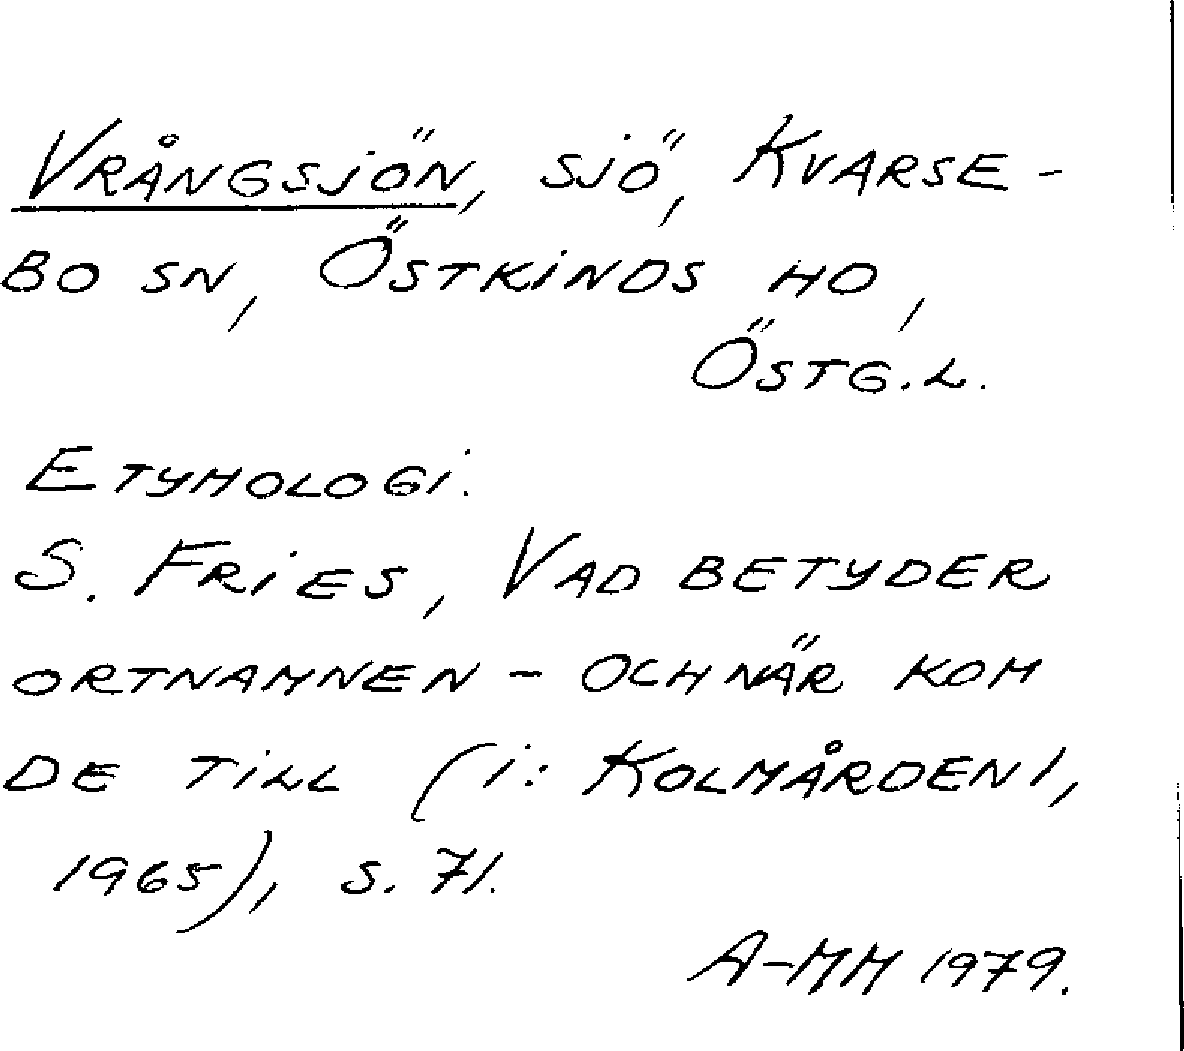 VRÅNGSJÖN, SJÖ, KVARSE-
BO SN, ÖSTKINDS HD,
ÖSTG.L.
ETYMOLOGI.
S. FRIES, VAD BETYDER
ORTNAMNEN - OCH NÄR KOM
DE TILL (I: KOLMÅRDEN 1,
1965), S. 71.
A-MM 1979.